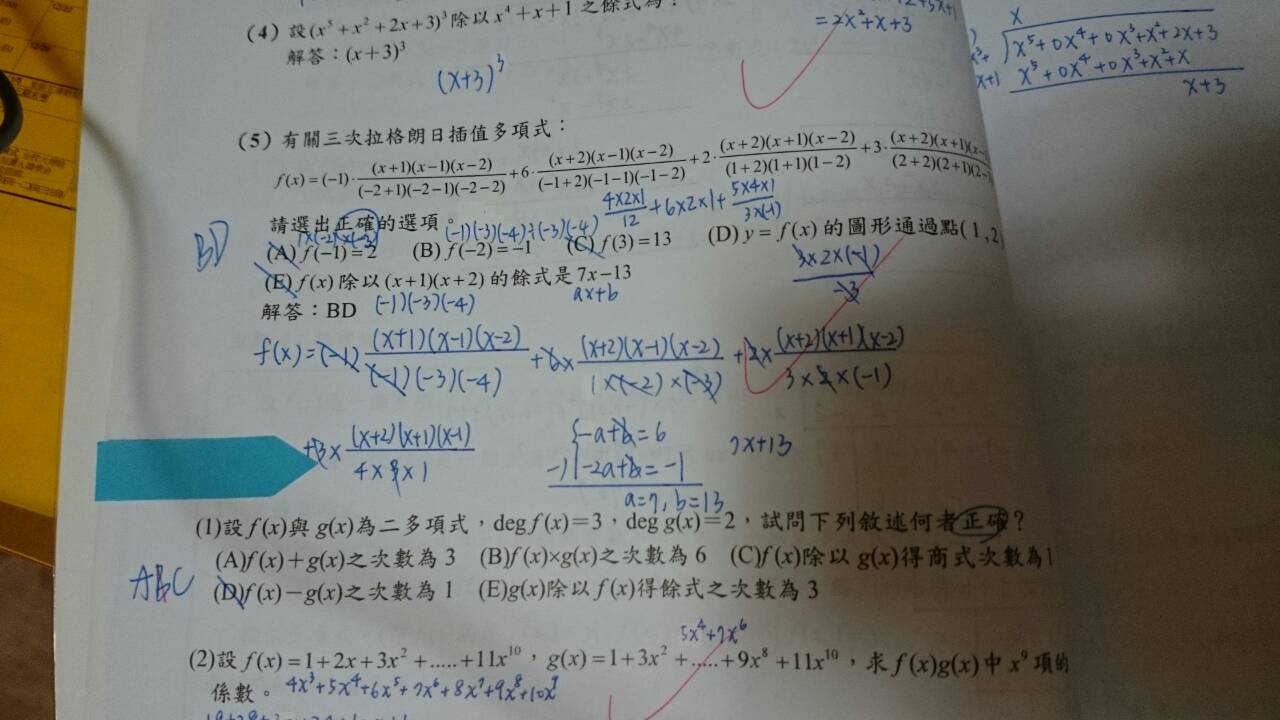 (4) 設(x⁵+x²+2x+3)³除以x⁴+x+1之餘式為?
解答:(x+3)³
(x+3)³
=2x²+x+3
x
x⁵+0x⁴+0x³+x²+2x+3
x⁵+0x⁴+0x³+x²+x
x+3
(5) 有關三次拉格朗日插值多項式:
f(x)=(-1)·(x+1)(x-1)(x-2)/(-2+1)(-2-1)(-2-2)+6·(x+2)(x-1)(x-2)/(-1+2)(-1-1)(-1-2)+2·(x+2)(x+1)(x-2)/(1+2)(1+1)(1-2)+3·(x+2)(x+1)(x-/(2+2)(2+1)(2-
4×2×1/12+6×2×1+5×4×1/3×(-1)
請選出正確的選項。
(-1)(-3)(-4)÷(-3)(-4)
BD
(A) f(-1)=2 (B) f(-2)=-1 (C) f(3)=13 (D) y=f(x)的圖形通過點(1,2
3×2×(-1)/-3
(E) f(x)除以(x+1)(x+2)的餘式是7x-13
ax+b
解答:BD
(-1)(-3)(-4)
f(x)=(-1)(x+1)(x-1)(x-2)/(-1)(-3)(-4)+6×(x+2)(x-1)(x-2)/1×(-2)×(-3)+2×(x+2)(x+1)(x-2)/3×2×(-1)
+3×(x+2)(x+1)(x-1)/4×3×1
-a+b=6
-1 -2a+b=-1
a=7, b=13
7x+13
(1)設f(x)與g(x)為二多項式,deg f(x)=3,deg g(x)=2,試問下列敘述何者正確?
(A)f(x)+g(x)之次數為3 (B)f(x)×g(x)之次數為6 (C)f(x)除以g(x)得商式次數為1
ABC
(D)f(x)-g(x)之次數為1 (E)g(x)除以f(x)得餘式之次數為3
5x⁴+7x⁶
(2)設f(x)=1+2x+3x²+.....+11x¹⁰,g(x)=1+3x²+.....+9x⁸+11x¹⁰,求f(x)g(x)中x⁹項的
係數。
4x³+5x⁴+6x⁵+7x⁶+8x⁷+9x⁸+10x⁹